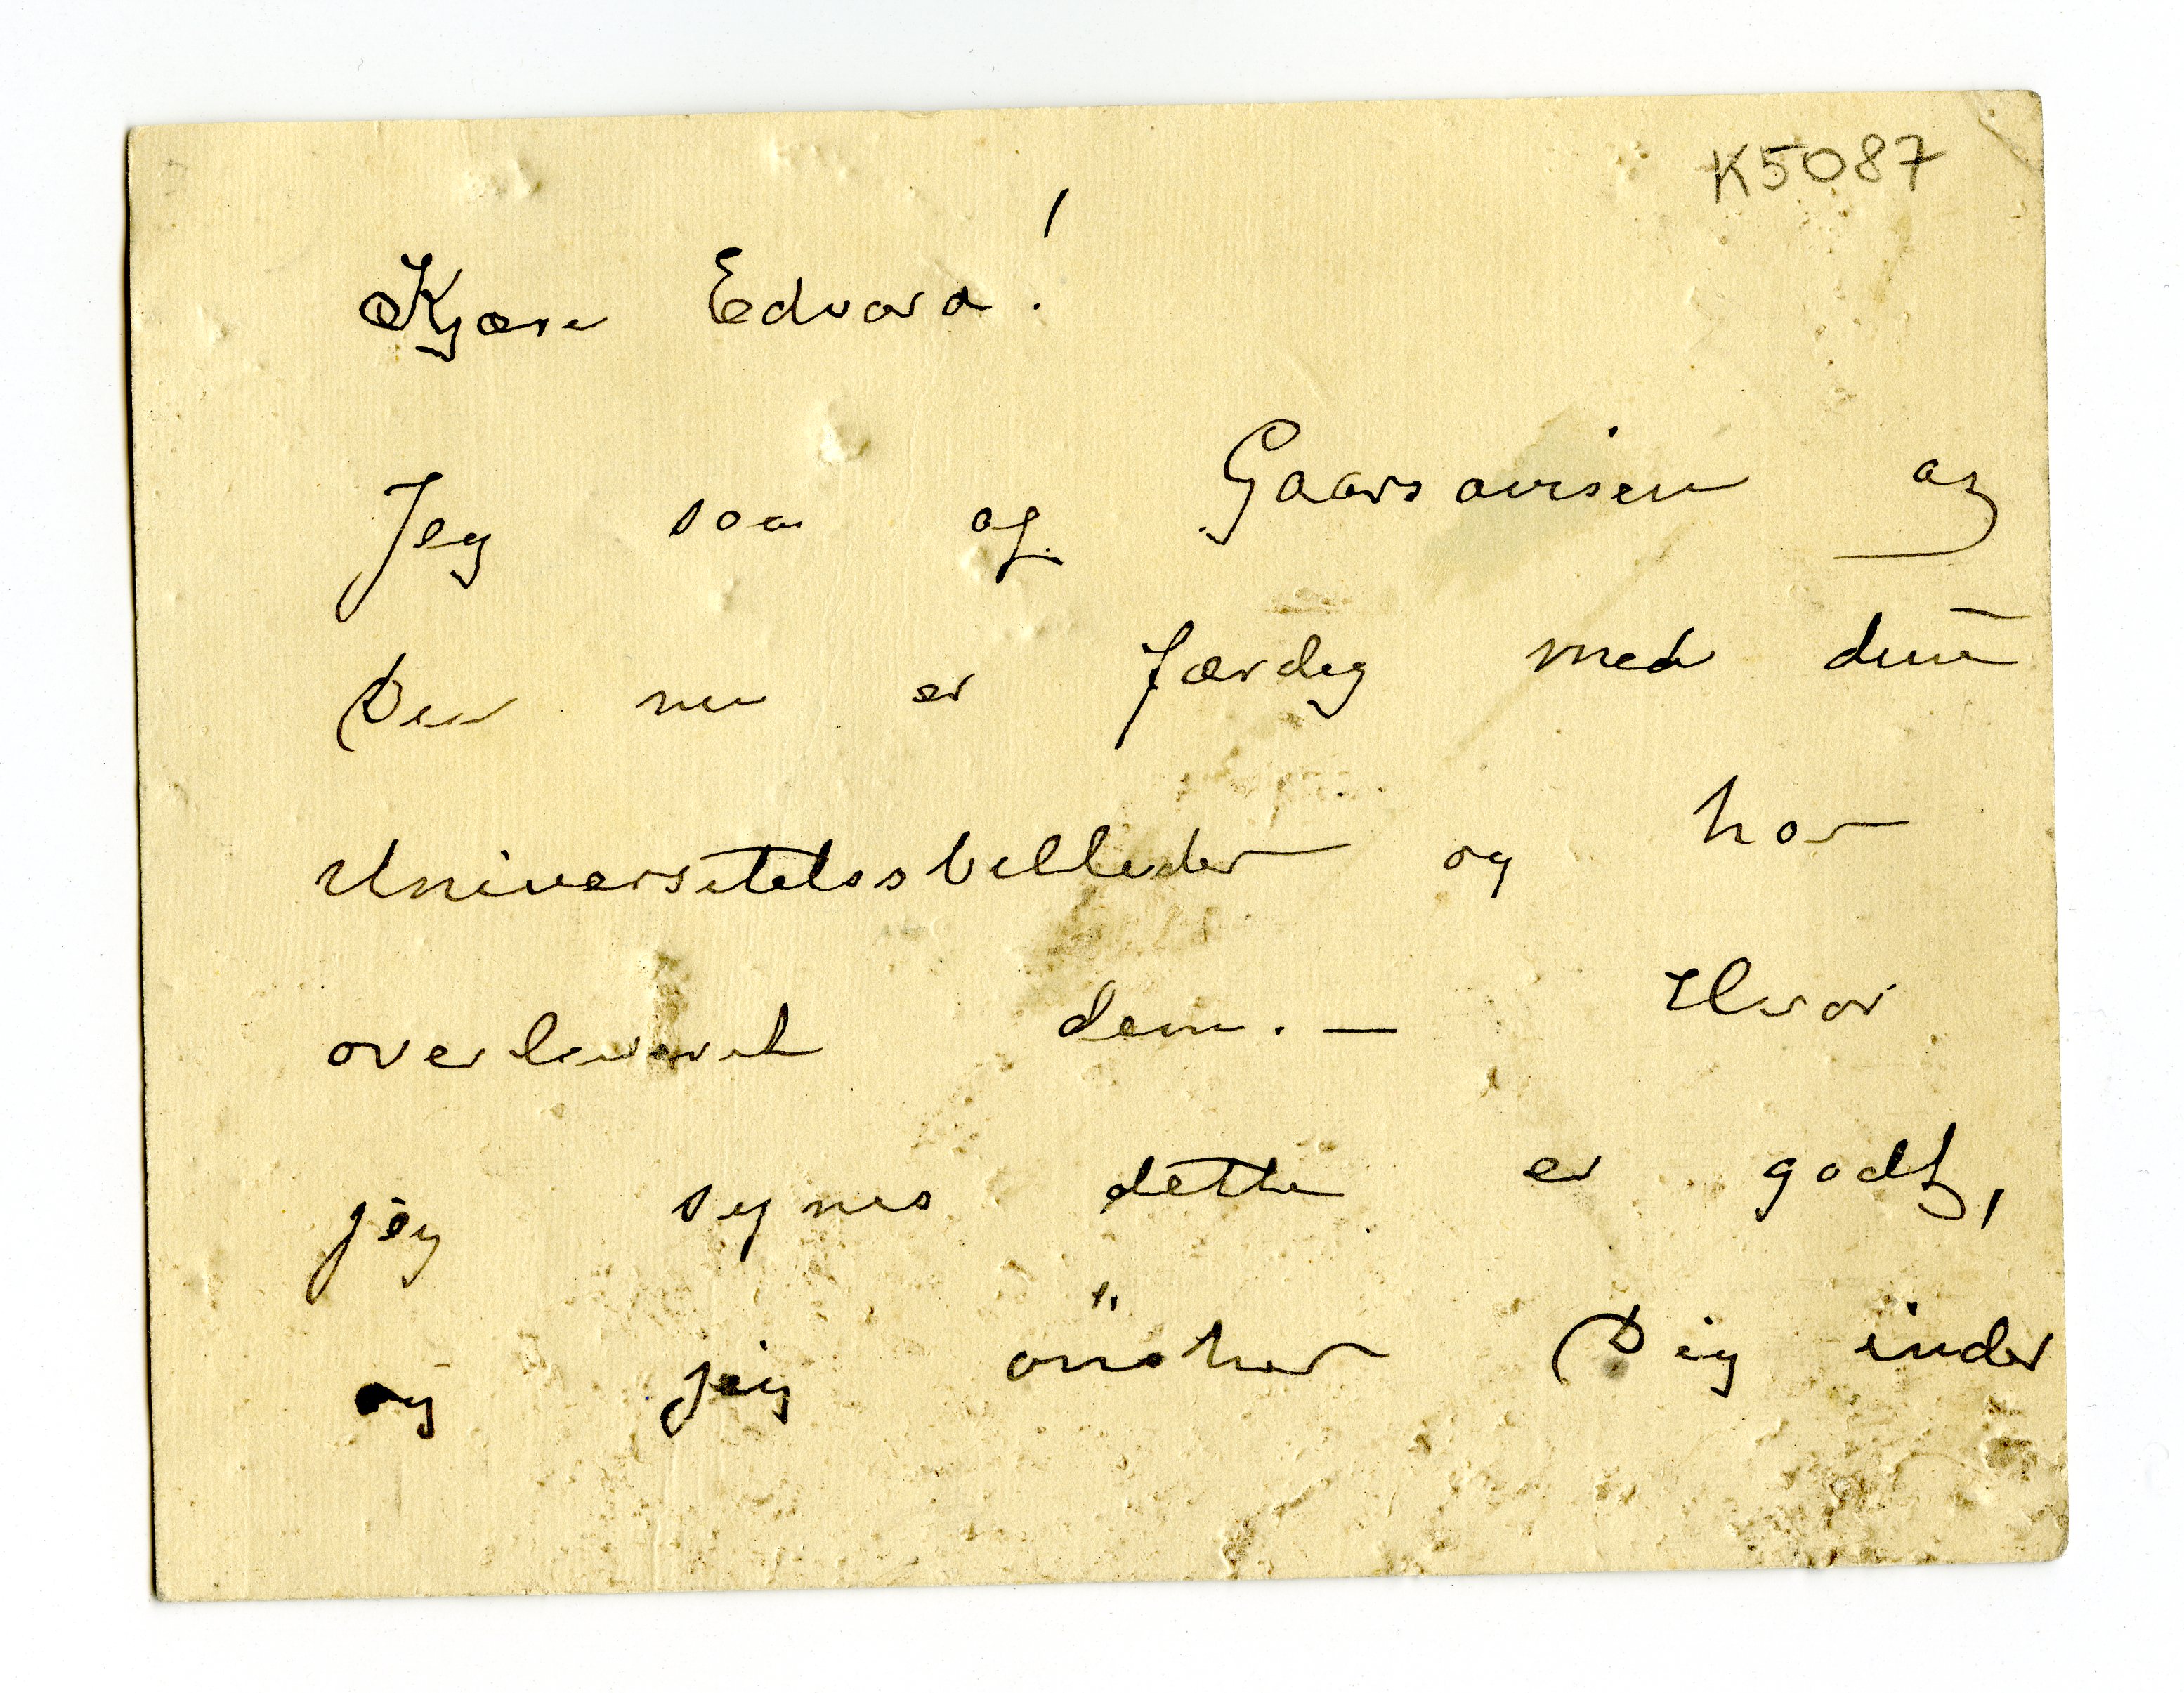 K5087
Kjære Edvard!
Jeg saa af Gaarsavisen at
Du nu er færdig med dine
Universitetssbilleder og har
overleveret dem. — Hvor
jeg synes dette er godt,
og jeg önsker Dig inder